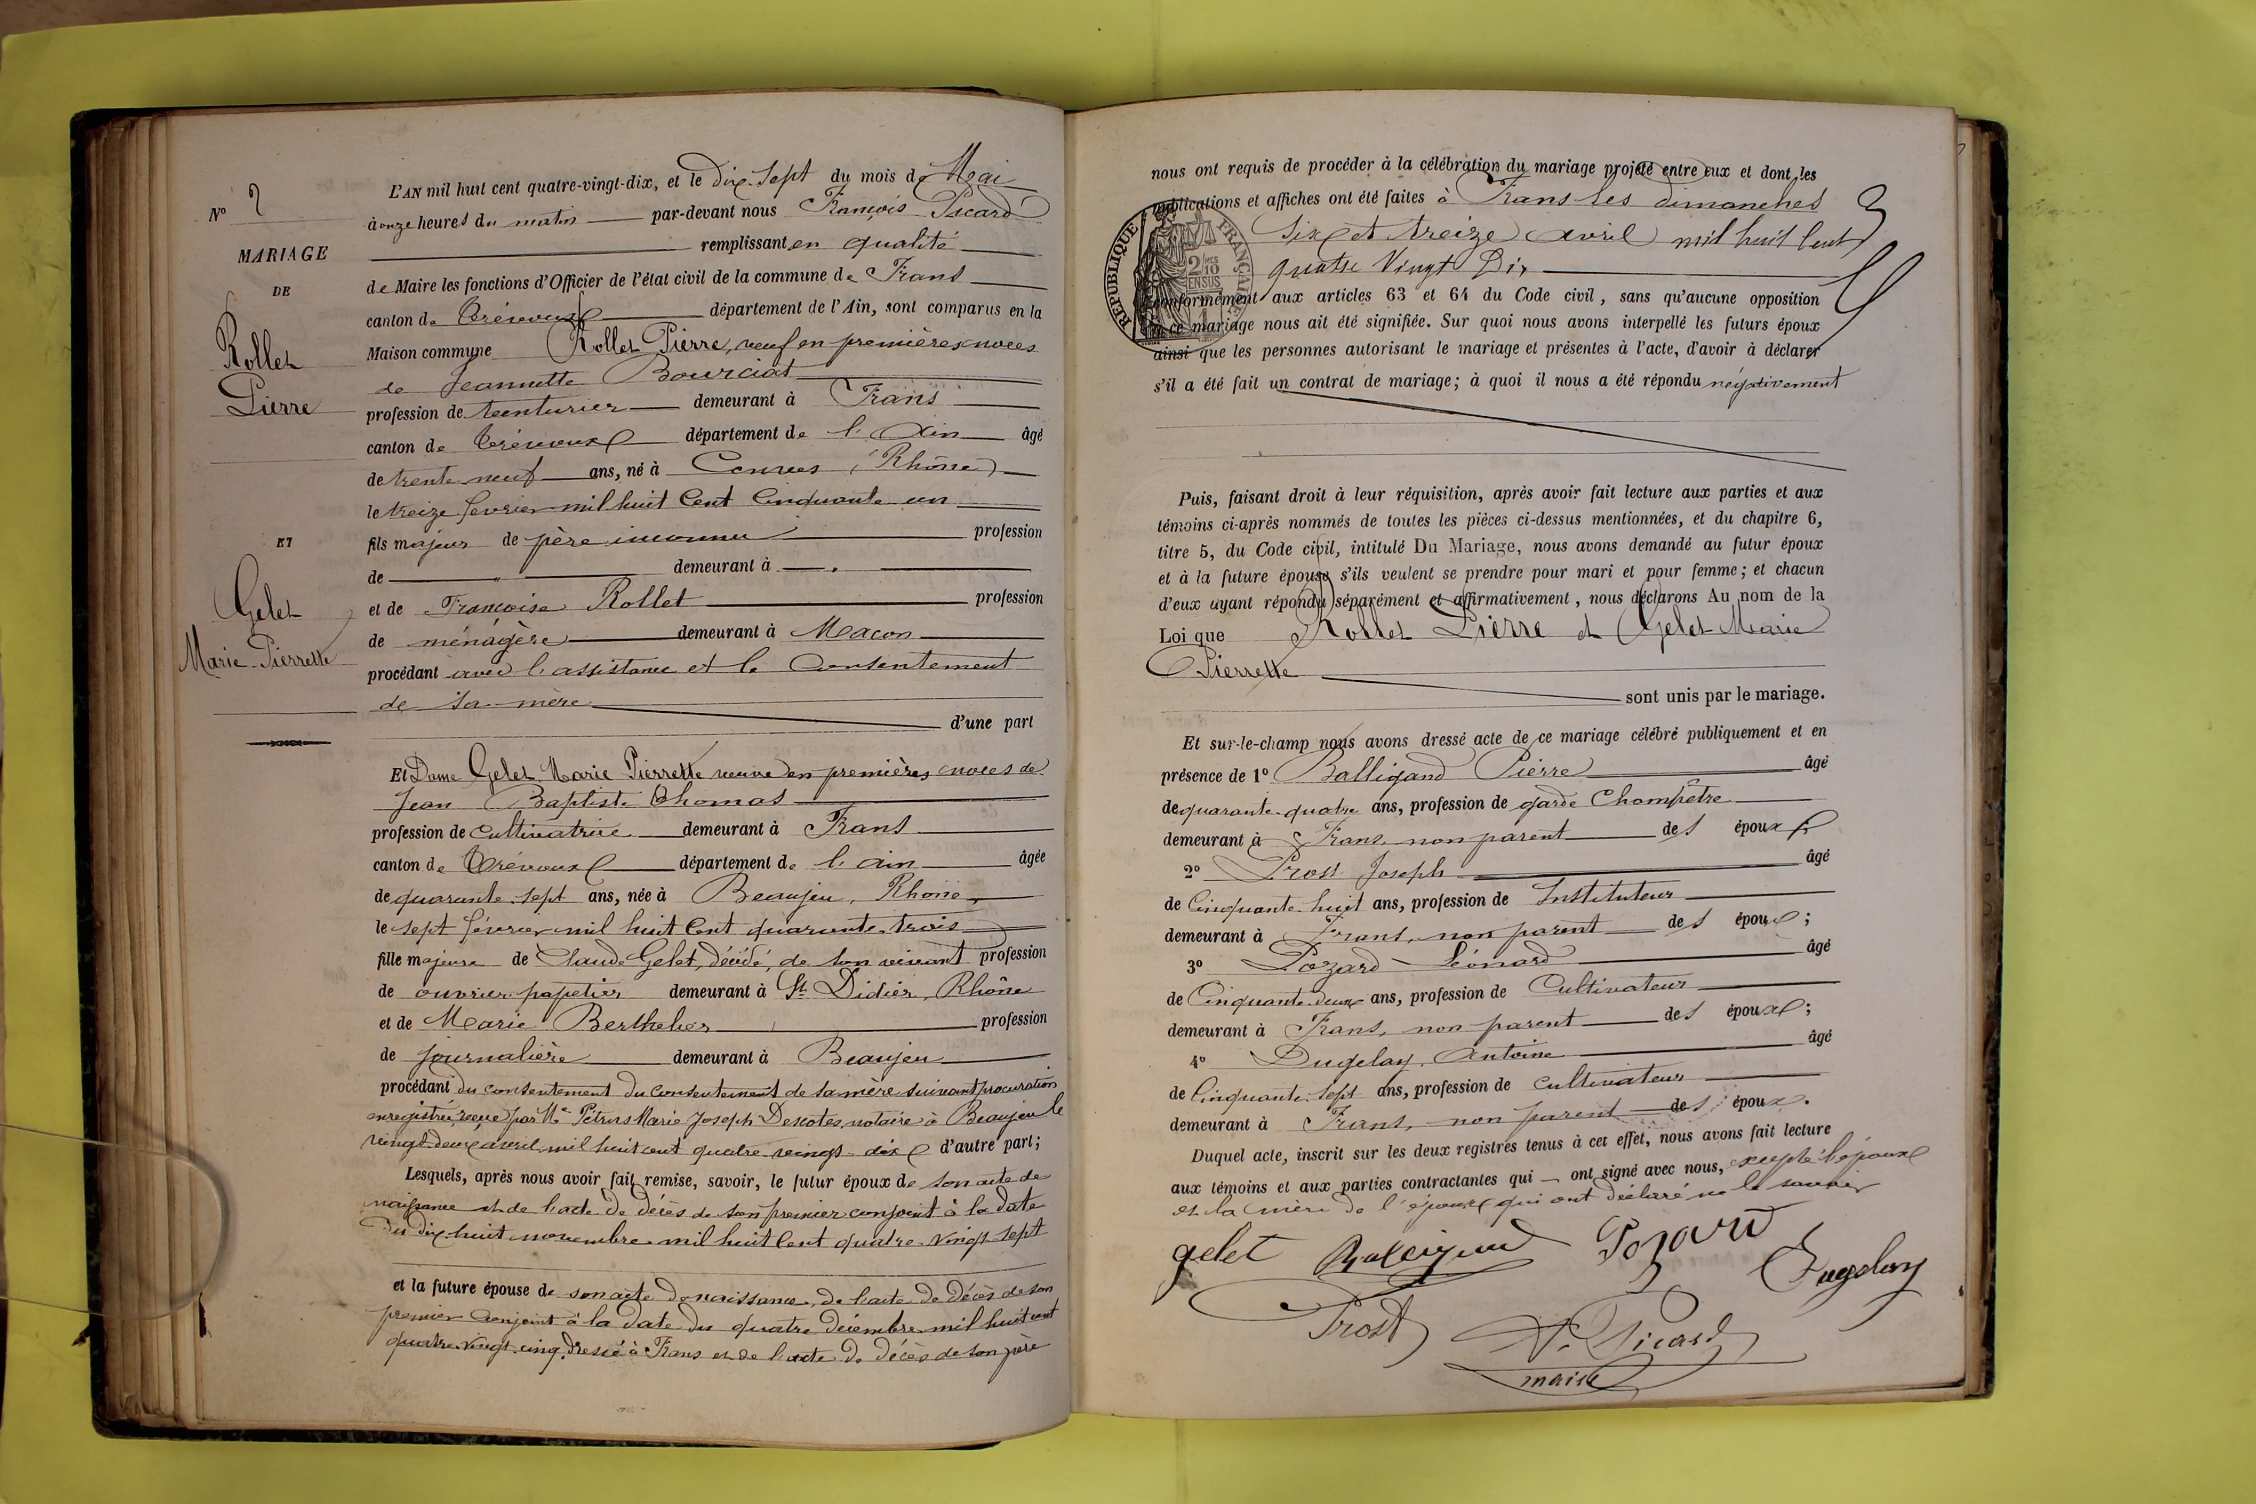 N° 2
MARIAGE
DE
Rollet
Pierre
ET
Gelet
Marie Pierrette
L'AN mil huit cent quatre-vingt-dix, et le dix-sept du mois de Mai
à onze heures du matin par-devant nous François Picard
remplissant en qualité
de Maire les fonctions d'Officier de l'état civil de la commune de Frans
canton de Trévoux département de l'Ain, sont comparus en la
Maison commune Rollet Pierre, veuf en premières noces
de Jeannette Bourciat
profession de teinturier demeurant à Frans
canton de Trévoux département de l'Ain âgé
de trente neuf ans, né à (Rhône)
le treize février mil huit Cent Cinquante un
fils majeur de père inconnu profession
de " demeurant à
et de Françoise Rollet profession
de ménagère demeurant à Macon
procédant avec l'assistance et le Consentement
de sa mère
d'une part
Et Dame Gelet Marie Pierrette veuve en premières noces de
Jean Baptiste Thomas
profession de Cultivatrice demeurant à Frans
canton de Trévoux département de l'ain âgée
de quarante sept ans, née à Beaujeu, Rhône,
le sept février mil huit Cent quarante trois
fille majeure de Claude Gelet, décédé, de son vivant profession
de ouvrier papetier demeurant à St Didier, Rhône
et de Marie Berthelier profession
de journalière demeurant à Beaujeu
procédant du consentement du consentement de sa mère suivant procuration
enregistrée, reçue par Me Pétrus Marie Joseph Descotes, notaire à Beaujeu le
vingt-deux avril mil huit cent quatre vingt-dix d'autre part;
Lesquels, après nous avoir fait remise, savoir, le futur époux de son acte de
naissance et de l'acte de décès de son premier conjoint à la date
du dix-huit novembre mil huit Cent quatre-vingt sept
et la future épouse de son acte de naissance, de l'acte de décès de son
premier Conjoint à la date du quatre décembre mil huit cent
quatre-vingt-cinq dressé à Frans et de l'acte de décès de son père
nous ont requis de procéder à la célébration du mariage projeté entre eux et dont les
publications et affiches ont été faites à Frans les dimanches
Six et treize avril mil huit Cent
quatre Vingt Dix
RÉPUBLIQUE FRANÇAISE
2/10 EN SUS
conformément aux articles 63 et 64 du Code civil, sans qu'aucune opposition
à ce mariage nous ait été signifiée. Sur quoi nous avons interpellé les futurs époux
ainsi que les personnes autorisant le mariage et présentes à l'acte, d'avoir à déclarer
s'il a été fait un contrat de mariage; à quoi il nous a été répondu négativement
Puis, faisant droit à leur réquisition, après avoir fait lecture aux parties et aux
témoins ci-après nommés de toutes les pièces ci-dessus mentionnées, et du chapitre 6,
titre 5, du Code civil, intitulé Du Mariage, nous avons demandé au futur époux
et à la future épouse s'ils veulent se prendre pour mari et pour femme; et chacun
d'eux ayant répondu séparément et affirmativement, nous déclarons Au nom de la
Loi que Rollet Pierre et Gelet Marie
Pierrette
sont unis par le mariage.
Et sur-le-champ nous avons dressé acte de ce mariage célébré publiquement et en
présence de 1° Balligand Pierre âgé
de quarante-quatre ans, profession de garde Champêtre
demeurant à Frans, non parent des époux;
2° Prost Joseph âgé
de Cinquante-huit ans, profession de Instituteur
demeurant à Frans, non parent des époux;
3° Pozard Léonard âgé
de Cinquante-deux ans, profession de Cultivateur
demeurant à Frans, non parent des époux;
4° Dugelay Antoine âgé
de Cinquante-sept ans, profession de cultivateur
demeurant à Frans, non parent des époux.
Duquel acte, inscrit sur les deux registres tenus à cet effet, nous avons fait lecture
aux témoins et aux parties contractantes qui ont signé avec nous, excepté l'époux
et la mère de l'époux qui ont déclaré ne le savoir
gelet Balligand Pozard Dugelay
Prost Picard
maire